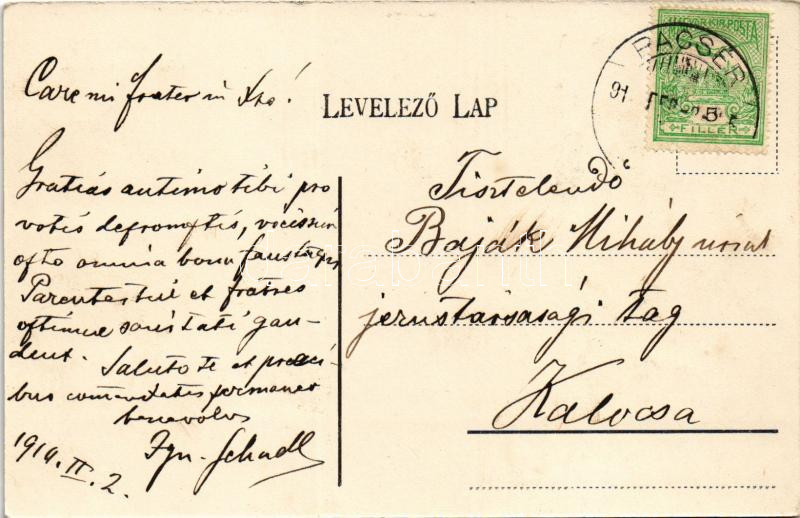 Care mi frater in Xto!
Gratias autimo tibi pro
votis depromptis, vicissim
opto omnia bona faustaque
Parentes tui et fratres
optimae sanitati gau-
dent. Saluto te et preci-
bus comendatus permaneo
benevolus
Ign. Schadl
1914. II. 2.
LEVELEZŐ LAP
MAGYAR KIR. POSTA
5
FILLÉR
PACSÉR
Tisztelendő
Baják Mihály urnak
jezustársasági tag
Kalocsa